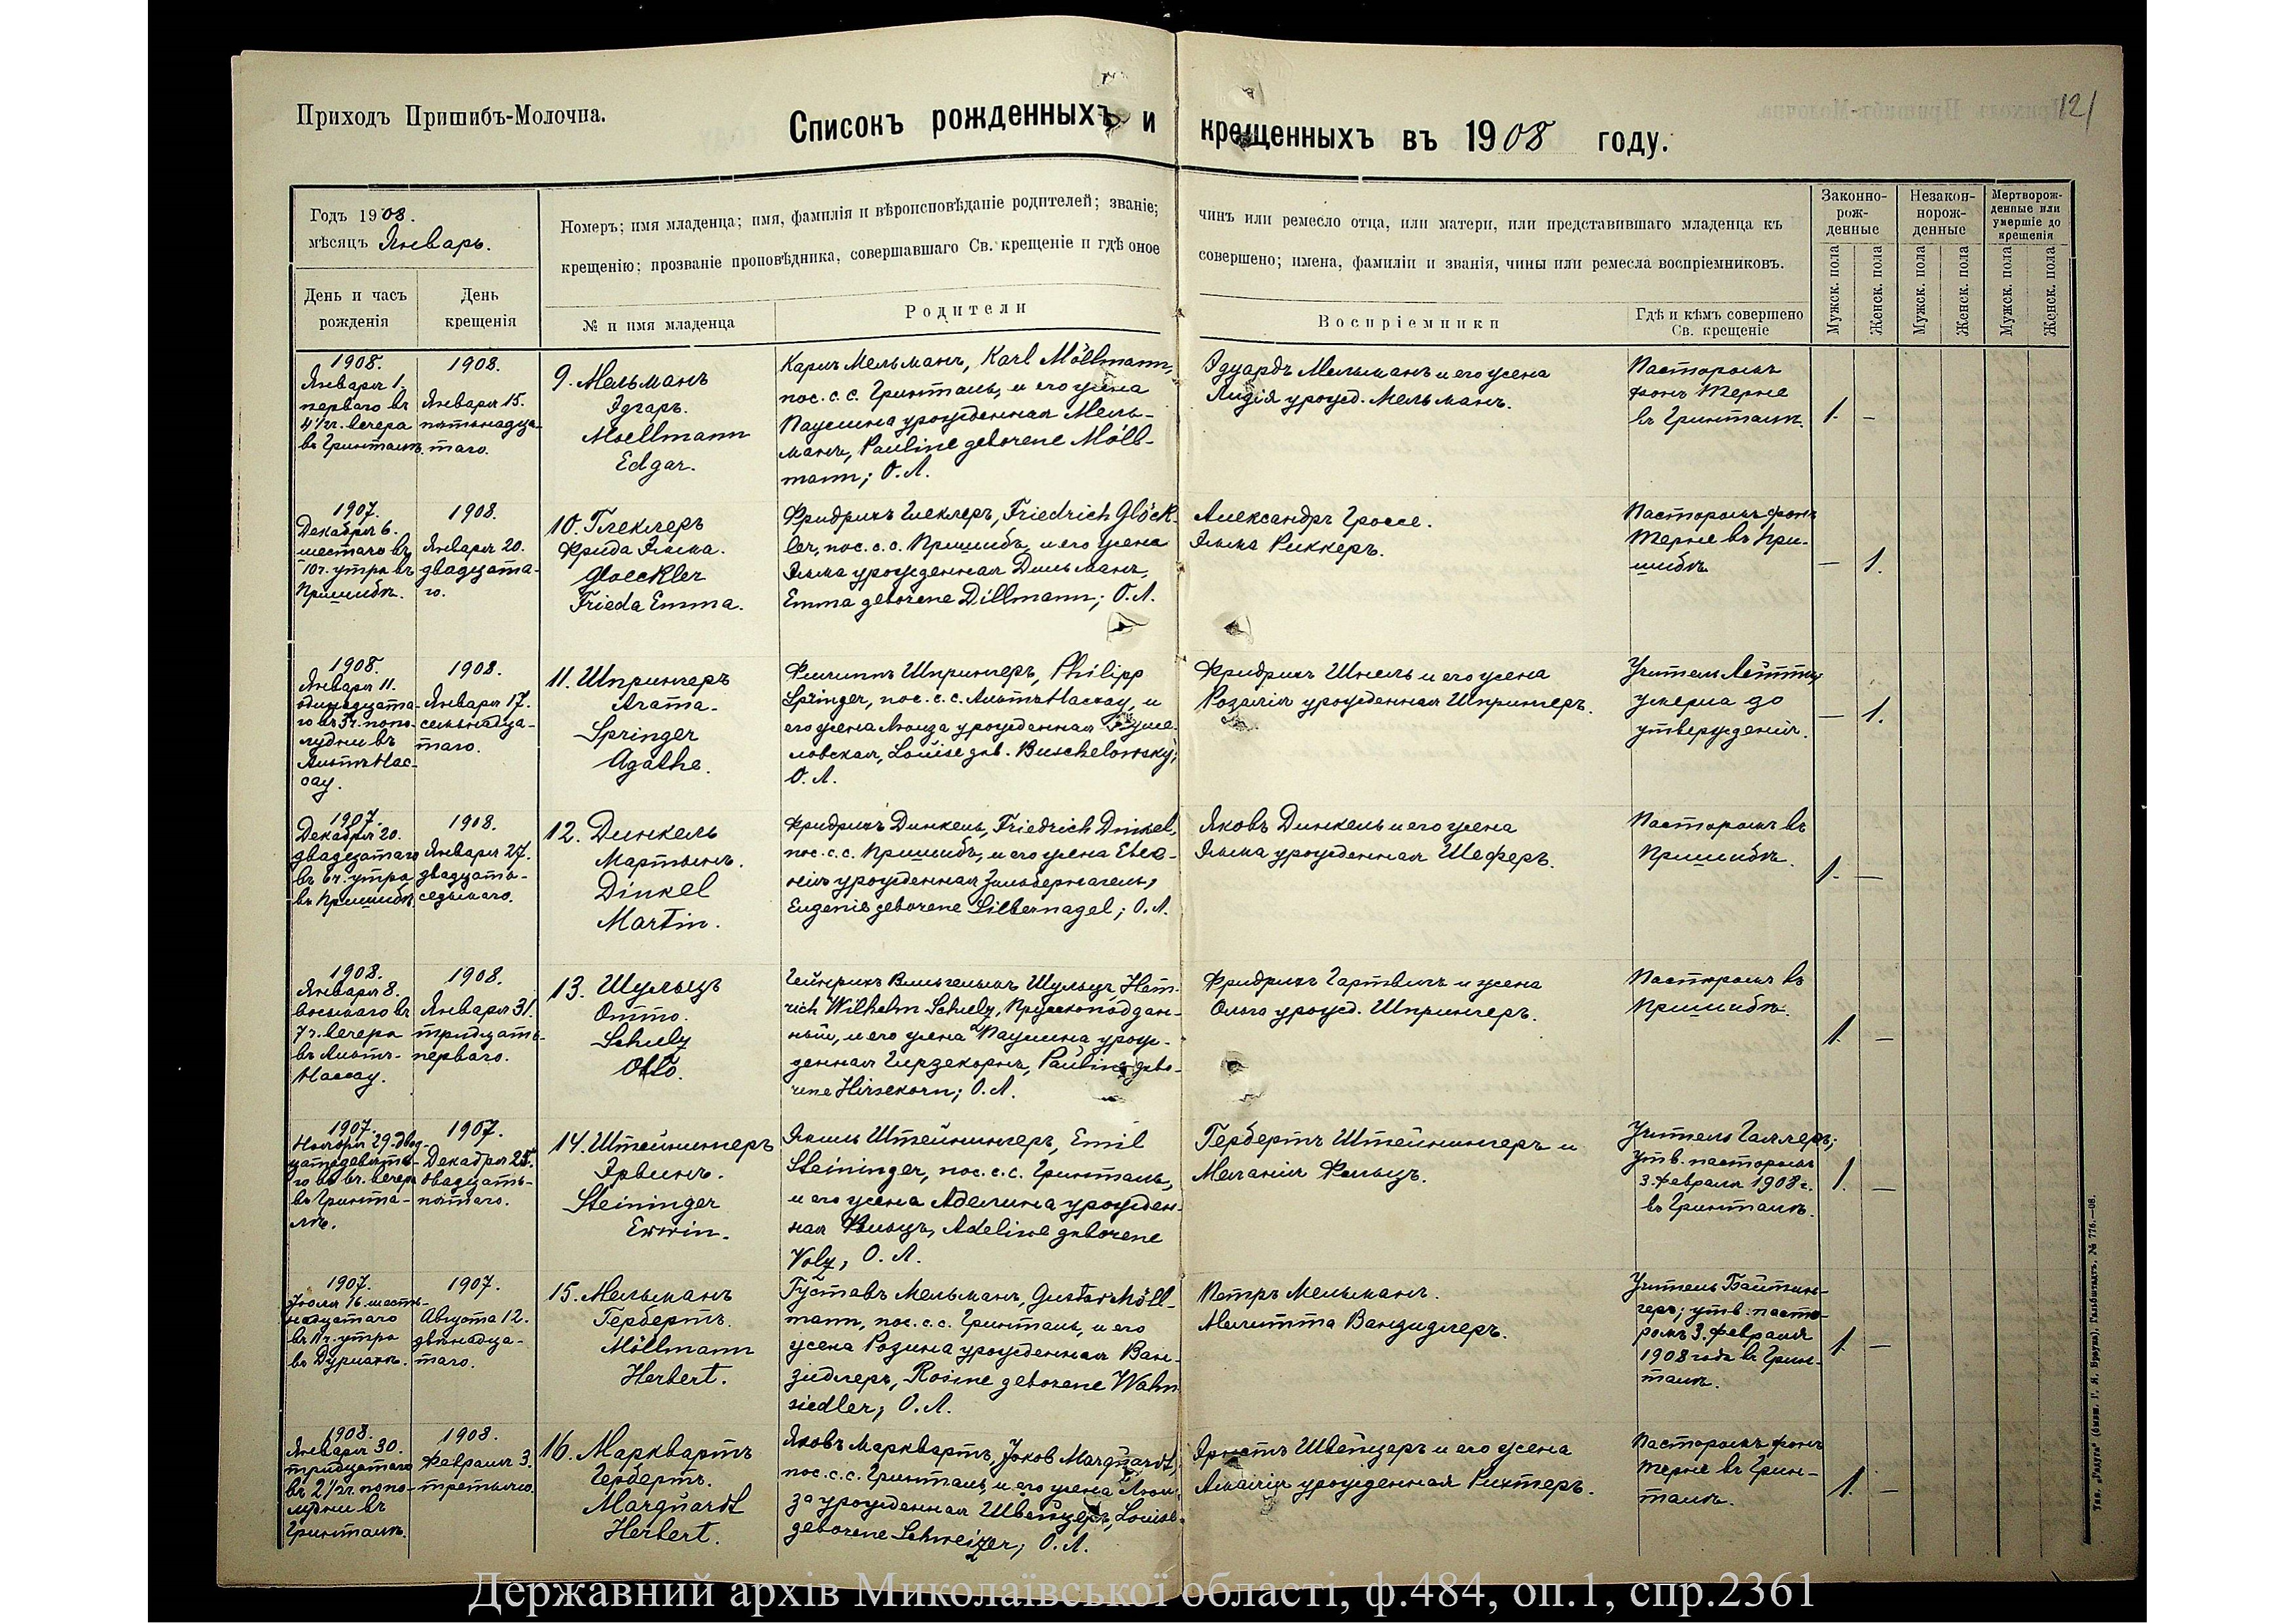 121
Приходъ Пришибъ-Молочна.
Списокъ рожденныхъ и крещенныхъ въ 1908 году.
Годъ 1908.
мѣсяцъ Январь.
Номеръ; имя младенца; имя, фамилія и вѣроисповѣданіе родителей; званіе;
крещенію; прозваніе проповѣдника, совершавшаго Св. крещеніе и гдѣ оное
чинъ или ремесло отца, или матери, или представившаго младенца къ
совершено; имена, фамиліи и званія, чины или ремесла воспріемниковъ.
Законно-
рож-
денные
Незакон-
норож-
денные
Мертворож-
денные или
умершіе до
крещенія
День и часъ
рожденія
День
крещенія
№ и имя младенца
Родители
Воспріемники
Гдѣ и кѣмъ совершено
Св. крещеніе
Мужск. пола
Женск. пола
Мужск. пола
Женск. пола
Мужск. пола
Женск. пола
1908.
Января 1.
перваго въ
4½ч. вечера
въ Гринталѣ.
1908.
Января 15.
пятьнадца-
таго.
9. Мельманъ
Эдгаръ.
Moellmann
Edgar.
Карлъ Мельманъ, Karl Möllmann,
пос. с. с. Гринталь, и его жена
Паулина урожденная Мель-
манъ, Pauline geborene Möll-
mann; О. Л.
Эдуардъ Мельманъ и его жена
Лидія урожд. Мельманъ.
Пасторомъ
фонъ Терне
въ Гринталѣ.
1. –
1907.
Декабря 6.
шестаго въ
10ч. утра въ
Пришибѣ.
1908.
Января 20.
двадцата-
го.
10. Глеклеръ
Фрида Эмма.
Gloeckler
Frieda Emma.
Фридрихъ Глеклеръ, Friedrich Glöck-
ler, пос. с. с. Пришибъ, и его жена
Эмма урожденная Дильманъ,
Emma geborene Dillmann; О. Л.
Александръ Гроссе.
Эмма Риккеръ.
Пасторомъ фонъ
Терне въ При-
шибѣ.
– 1.
1908.
Января 11.
одинадцата-
го въ 3ч. попо-
лудни въ
АльтъНас-
сау.
1908.
Января 17.
семьнадца-
таго.
11. Шпрингеръ
Агата.
Springer
Agathe.
Филиппъ Шпрингеръ, Philipp
Springer, пос. с. с. АльтъНассау, и
его жена Луиза урожденная Буше-
ловская, Louise geb. Buschelowsky;
О. Л.
Фридрихъ Шнель и его жена
Розалія урожденная Шпрингеръ.
Учитель
умерла до
утвержденія.
– 1.
1907.
Декабря 20.
двадцатаго
въ 6ч. утра
въ Пришибѣ.
1908.
Января 27.
двадцать-
седьмаго.
12. Динкель
Мартынъ.
Dinkel
Martin.
Фридрихъ Динкель, Friedrich Dinkel,
пос. с. с. Пришибъ, и его жена Евге-
нія урожденная Зильбернагель,
Eugenie geborene Silbernagel; О. Л.
Яковъ Динкель и его жена
Эмма урожденная Шеферъ.
Пасторомъ въ
Пришибѣ.
1. –
1908.
Января 8.
восьмаго въ
7ч. вечера
въ Альтъ-
Нассау.
1908.
Января 31.
тридцать-
перваго.
13. Шульцъ
Отто.
Schulz
Otto.
Гейнрихъ Вильгельмъ Шульцъ, Hein-
rich Wilhelm Schulz, Прусскоподдан-
ный, и его жена Паулина урож-
денная Гирзекорнъ, Pauline gebo-
rene Hirsekorn; О. Л.
Фридрихъ Гартвигъ и жена
Ольга урожд. Шпрингеръ.
Пасторомъ въ
Пришибѣ.
1. –
1907.
Ноября 29. двад-
цатодевята-
го въ 6ч. вечера
въ Гринта-
лѣ.
1907.
Декабря 25.
двадцать-
пятаго.
14. Штейнингеръ
Эрвинъ.
Steininger
Erwin.
Эмиль Штейнингеръ, Emil
Steininger, пос. с. с. Гринталь,
и его жена Аделина урожден-
ная Фольцъ, Adeline geborene
Volz, О. Л.
Гербертъ Штейнингеръ и
Меланія Фольцъ.
Учитель Галлеръ;
утв. пасторомъ
3. Февраля 1908 г.
въ Гринталѣ.
1. –
1907.
Іюля 16. шесть-
надцатаго
въ 11ч. утра
въ Дурлахѣ.
1907.
Августа 12.
двѣнадца-
таго.
15. Мельманъ
Гербертъ.
Möllmann
Herbert.
Густавъ Мельманъ, Gustav Möll-
mann, пос. с. с. Гринталь, и его
жена Розина урожденная Ван-
зидлеръ, Rosine geborene Wahn-
siedler; О. Л.
Петръ Мельманъ.
Мелитта Ванзидлеръ.
Учитель Байтин-
геръ; утв. пасто-
ромъ 3. Февраля
1908 года въ Грин-
талѣ.
1. –
1908.
Января 30.
тридцатаго
въ 2½ч. попо-
лудни въ
Гринталѣ.
1908.
Февраля 3.
третьяго.
16. Марквартъ
Гербертъ.
Marquardt
Herbert.
Яковъ Марквартъ, Jakob Marquardt,
пос. с. с. Гринталь, и его жена Луи-
за урожденная Швейцеръ, Louise
geborene Schweizer; О. Л.
Эрнстъ Швейцеръ и его жена
Амалія урожденная Рихтеръ.
Пасторомъ фонъ
Терне въ Грин-
талѣ.
1. –
Тип. „Радуга“ (бывш. Г. Я. Брауна), Гальбштадтъ. № 776.—08.
Державний архів Миколаївської області, ф.484, оп.1, спр.2361